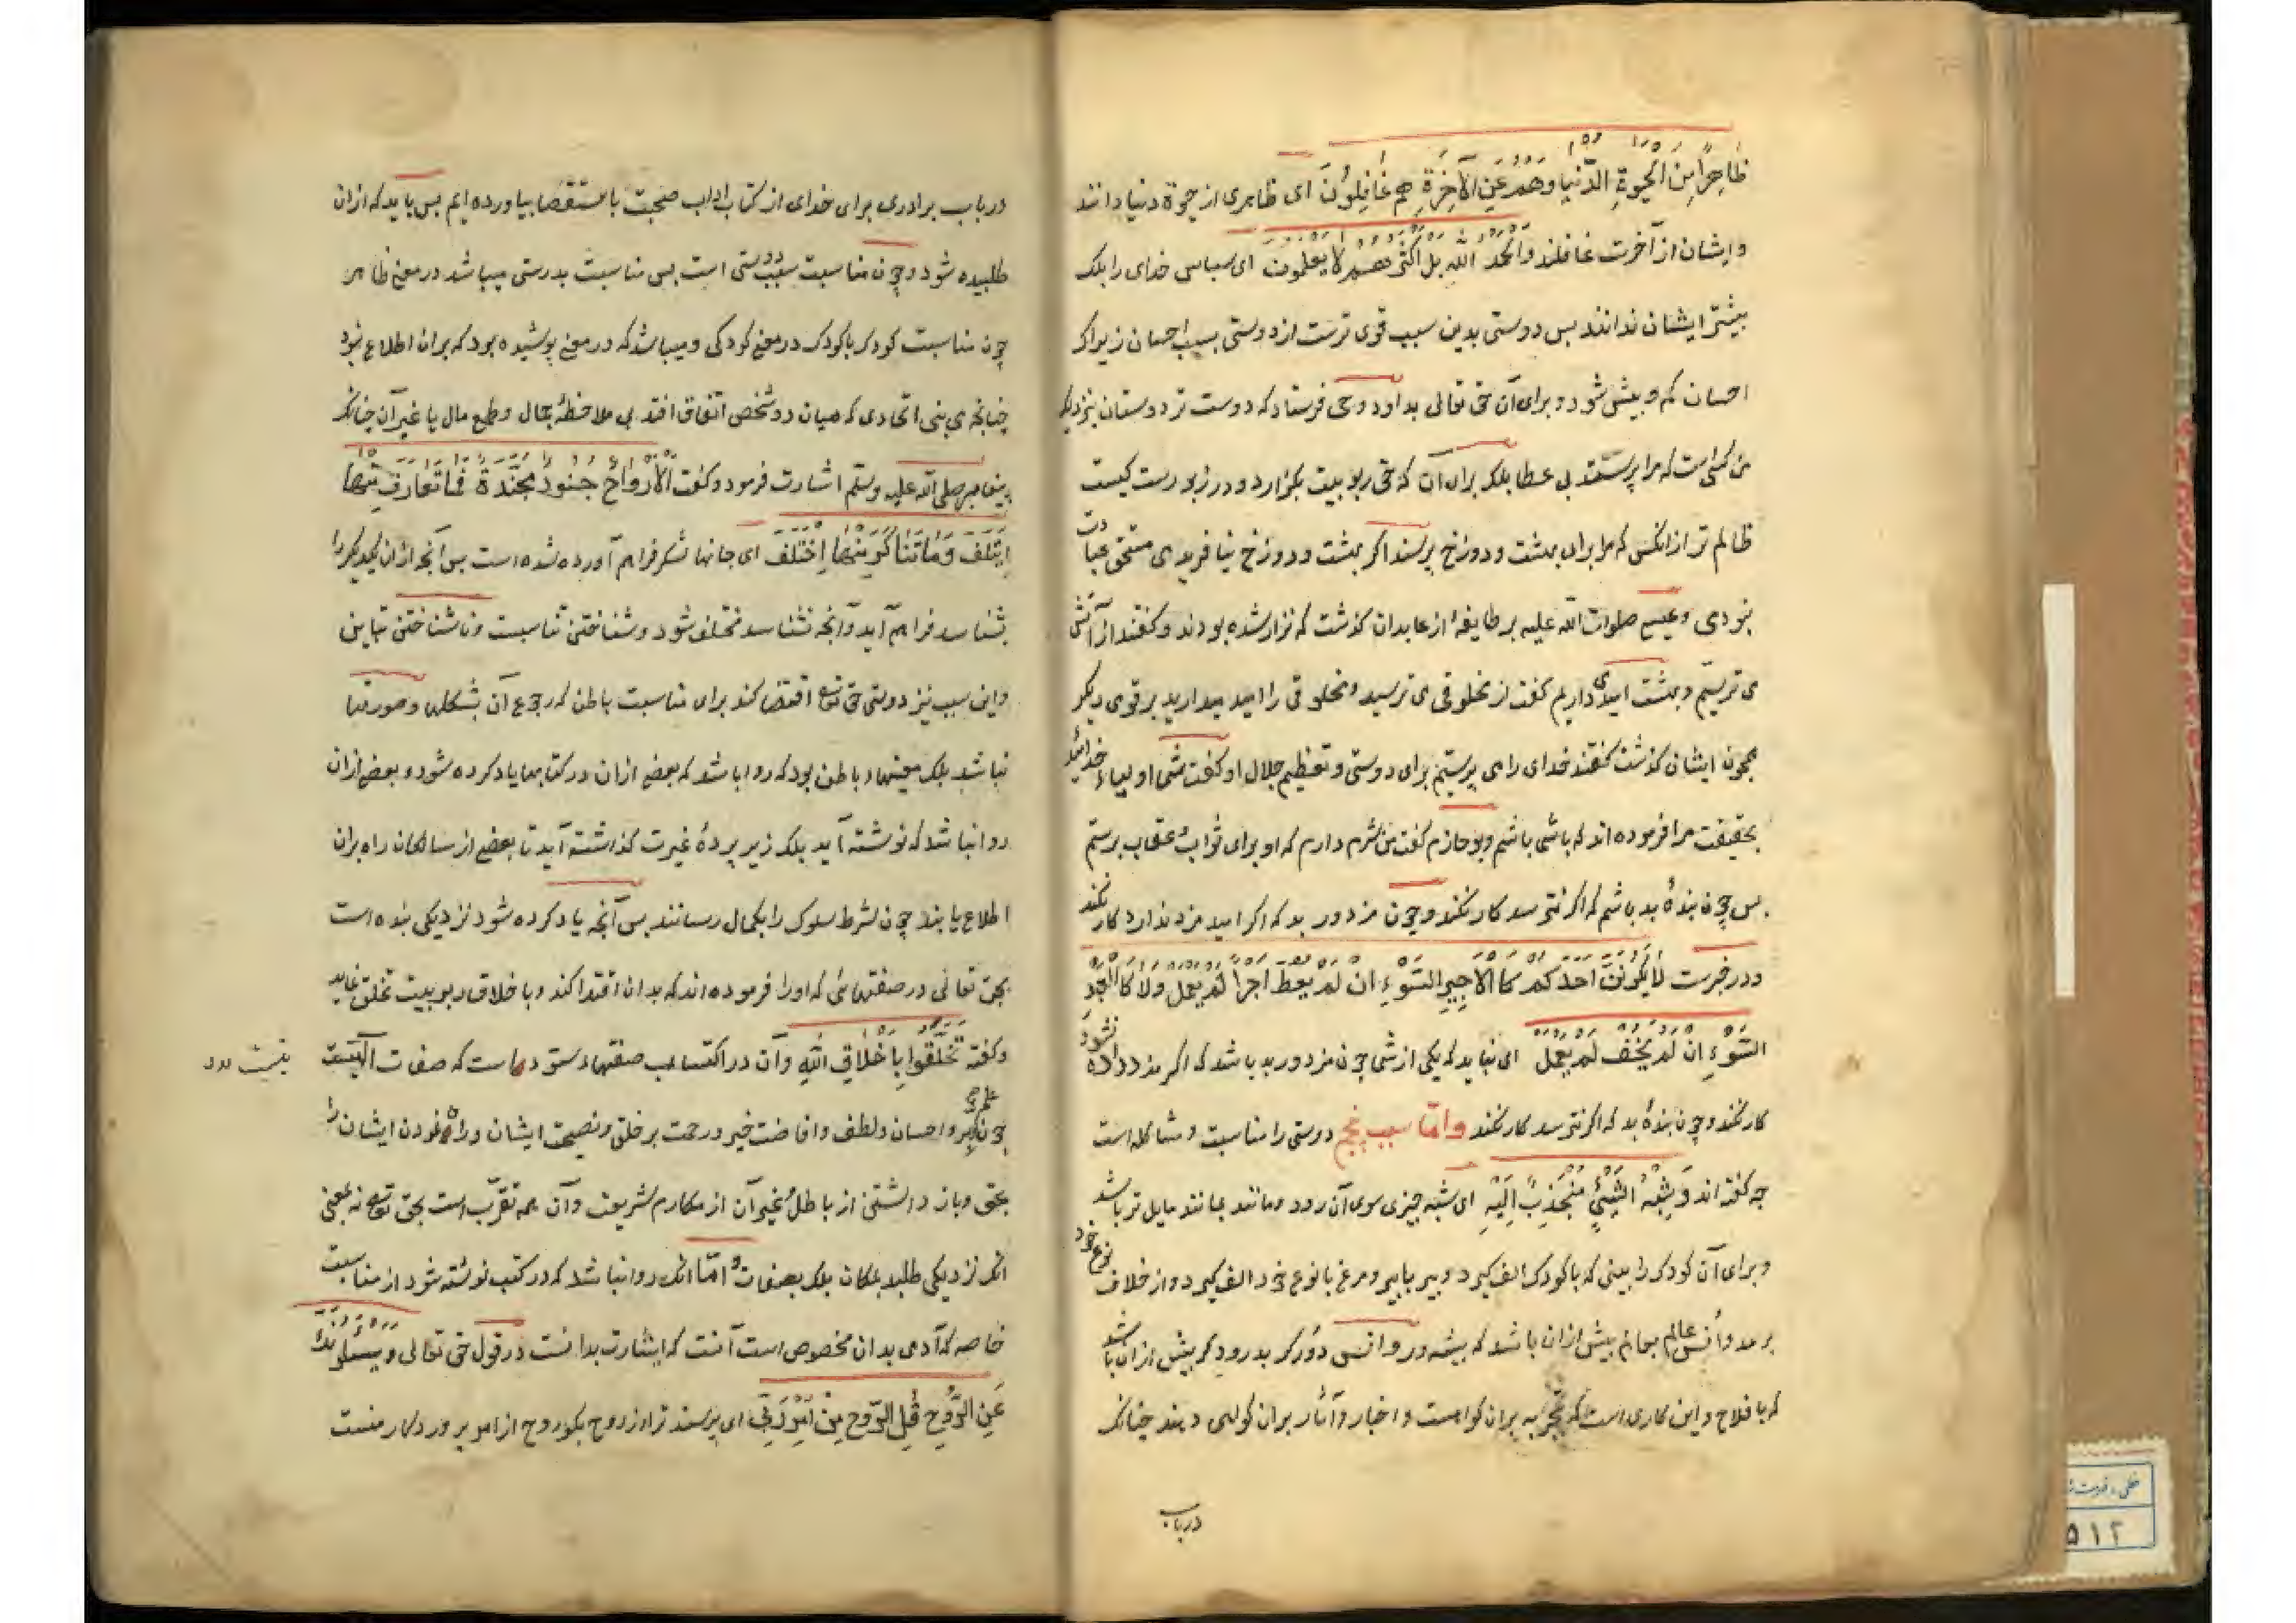 ظَاهِراً مِنَ الْحَیٰوةِ الدُّنْیَا وَهُمْ عَنِ الْآخِرَةِ هُم غَافِلُونَ ای ظاهری از حیوة دنیا دانند
وایشان از آخرت غافلند وَالْحَمْدُ لِلّٰهِ بَلْ اَکْثَرُهُمْ لَا یَعْلَمُونَ ای سپاس خدای را بلک
بیشتر ایشان ندانند بس دوستی بدین سبب قوی ترست از دوستی بسبب احسان زیراک
احسان کم و بیش شود و برای آن حق تعالی بداود وحی فرستاد که دوست تر دوستان بنزدیک
من کسی است که مرا پرستد بی عطا بلک برای آن که حق ربوبیت بگزارد و در زبورست کیست
ظالم تر از انکس که مرا برای بهشت و دوزخ پرستد اگر بهشت و دوزخ نیافریدمی مستحق عبادت
نبودی و عیسی صلوات الله علیه بر طایفهٔ از عابدان کذشت که نزار شده بودند و کفتند از آتش
می ترسیم و بهشت امید می داریم کفت از مخلوقی می ترسید و مخلوقی را امید میدارید بر قومی دیکر
همچون ایشان کذشت کفتند خدای را می پرستیم برای دوستی و تعظیم جلال او کفت شما اولیاء خدائید
بحقیقت مرا فرموده اند که با شما باشم وبو حازم کفت من شرم دارم که او برای ثواب و عقاب پرستم
بس چون بندهٔ بد باشم که اکر نترسد کار نکند و چون مزدور بد که اکر امید مزد ندارد کار نکند
ودر خبرست لَا یَکُونَنَّ اَحَدُکُمْ کَالْاَجِیرِ السَّوْءِ اِنْ لَمْ یُعْطَ اَجْراً لَمْ یَعْمَلْ وَلَا کَالْعَبْدِ
السَّوْءِ اِنْ لَمْ یَخَفْ لَمْ یَعْمَلْ ای نباید که یکی از شما چون مزدور بد باشد که اکر مزد داده نشود
کار نکند و چون بندهٔ بد که اکر نترسد کار نکند وامّا سبب پنجم دوستی را مناسبت و مشاکله است
چه کفته اند وَ شِبْهُ الشَّیْئِ مُنْجَذِبٌ اِلَیْهِ ای شبه چیزی سوی آن رود و مانند بمانند مایل تر باشد
و برای آن کودک را بینی که با کودک الف کیرد و پیر با پیر و مرغ با نوع خود الف کیرد و از خلاف نوع خود
برمد و اُنس عالم بعالم بیش ازان باشد که بپیشه ور و انس دُرُدکر بدرودکر بیش ازان باشد
که با فلاح و این کاری است که تجربه بران کواهست و اخبار و آثار بران کواهی دهند چنانکه
درباب
درباب برادری برای خدای از کتاب آداب صحبت باستقصا بیاورده ایم بس باید که ازان
طلبیده شود و چون مناسبت سبب دوستی است بس مناسبت بدرستی میباشد در معنی ظاهر
چون مناسبت کودک با کودک در معنی کودکی و میباشد که در معنی پوشیده بود که بران اطلاع نبود
چنانچه می بینی اتحادی که میان دو شخص اتفاق افتد بی ملاحظهٔ جمال و طمع مال یا غیر آن چنانکه
پیغامبر صلی الله علیه وسلّم اشارت فرمود و کفت الْاَرْوَاحُ جُنُودٌ مُجَنَّدَةٌ فَمَا تَعَارَفَ مِنْهَا
اِئْتَلَفَ وَمَا تَنَاکَرَ مِنْهَا اِخْتَلَفَ ای جانها لشکر فراهم آورده شده است بس آنچه ازان یکدیکر را
بشناسد فراهم آید و آنچه نشناسد مختلف شود و شناختن تناسبت و ناشناختن تباین
واین سبب نیز دوستی حق تعالی اقتضا کند برای مناسبت باطن که رجوع آن بشکلها و صورتها
نباشد بلک بمعنیهاء باطن بود که روا باشد که بعضی ازان در کتابها یاد کرده شود و بعضی ازان
روا نباشد که نوشته آید بلک زیر پردهٔ غیرت کذاشته آید تا بعضی از سالکان راه بران
اطلاع یابند چون شرط سلوک را بکمال رسانند بس آنچه یاد کرده شود نزدیکی بنده است
بحق تعالی در صفتهائی که اورا فرموده اند که بدان اقتدا کند و باخلاق ربوبیت تخلق نماید
وکفته تَخَلَّقُوا بِاَخْلَاقِ اللّٰهِ وآن در اکتساب صفتهاء ستوده است که صفات الهیست
چون علم و بر و احسان و لطف و افاضت خیر و رحمت بر خلق و نصیحت ایشان و راه نمودن ایشان را
بحق و باز داشتن از باطل و غیر آن از مکارم شریعت وآن همه تقرّب است بحق تعالی نه بمعنی
انکه نزدیکی طلبد بمکان بلک بصفات و امّا انکه روا نباشد که در کتب نوشته شود از مناسبت
خاصه که آدمی بدان مخصوص است آنست که اشارت بدانست در قول حق تعالی وَیَسْئَلُونَکَ
عَنِ الرُّوحِ قُلِ الرُّوحُ مِنْ اَمْرِ رَبِّی ای پرسند ترا از روح بکو روح از امر پروردکار منست
۵۱۲